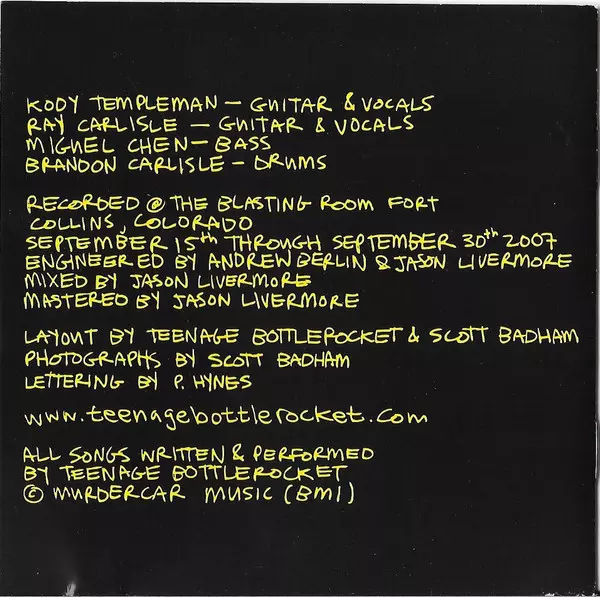 KODY TEMPLEMAN – GUITAR & VOCALS
RAY CARLISLE – GUITAR & VOCALS
MIGUEL CHEN – BASS
BRANDON CARLISLE – DRUMS
RECORDED @ THE BLASTING ROOM FORT
COLLINS, COLORADO
SEPTEMBER 15th THROUGH SEPTEMBER 30th 2007
ENGINEERED BY ANDREW BERLIN & JASON LIVERMORE
MIXED BY JASON LIVERMORE
MASTERED BY JASON LIVERMORE
LAYOUT BY TEENAGE BOTTLEROCKET & SCOTT BADHAM
PHOTOGRAPHS BY SCOTT BADHAM
LETTERING BY P. HYNES
www.teenagebottlerocket.com
ALL SONGS WRITTEN & PERFORMED
BY TEENAGE BOTTLEROCKET
© MURDERCAR MUSIC (BMI)